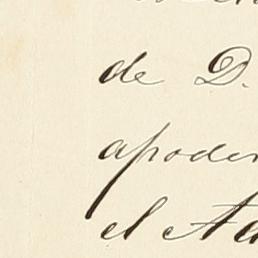 de D.
apoder
el Ad